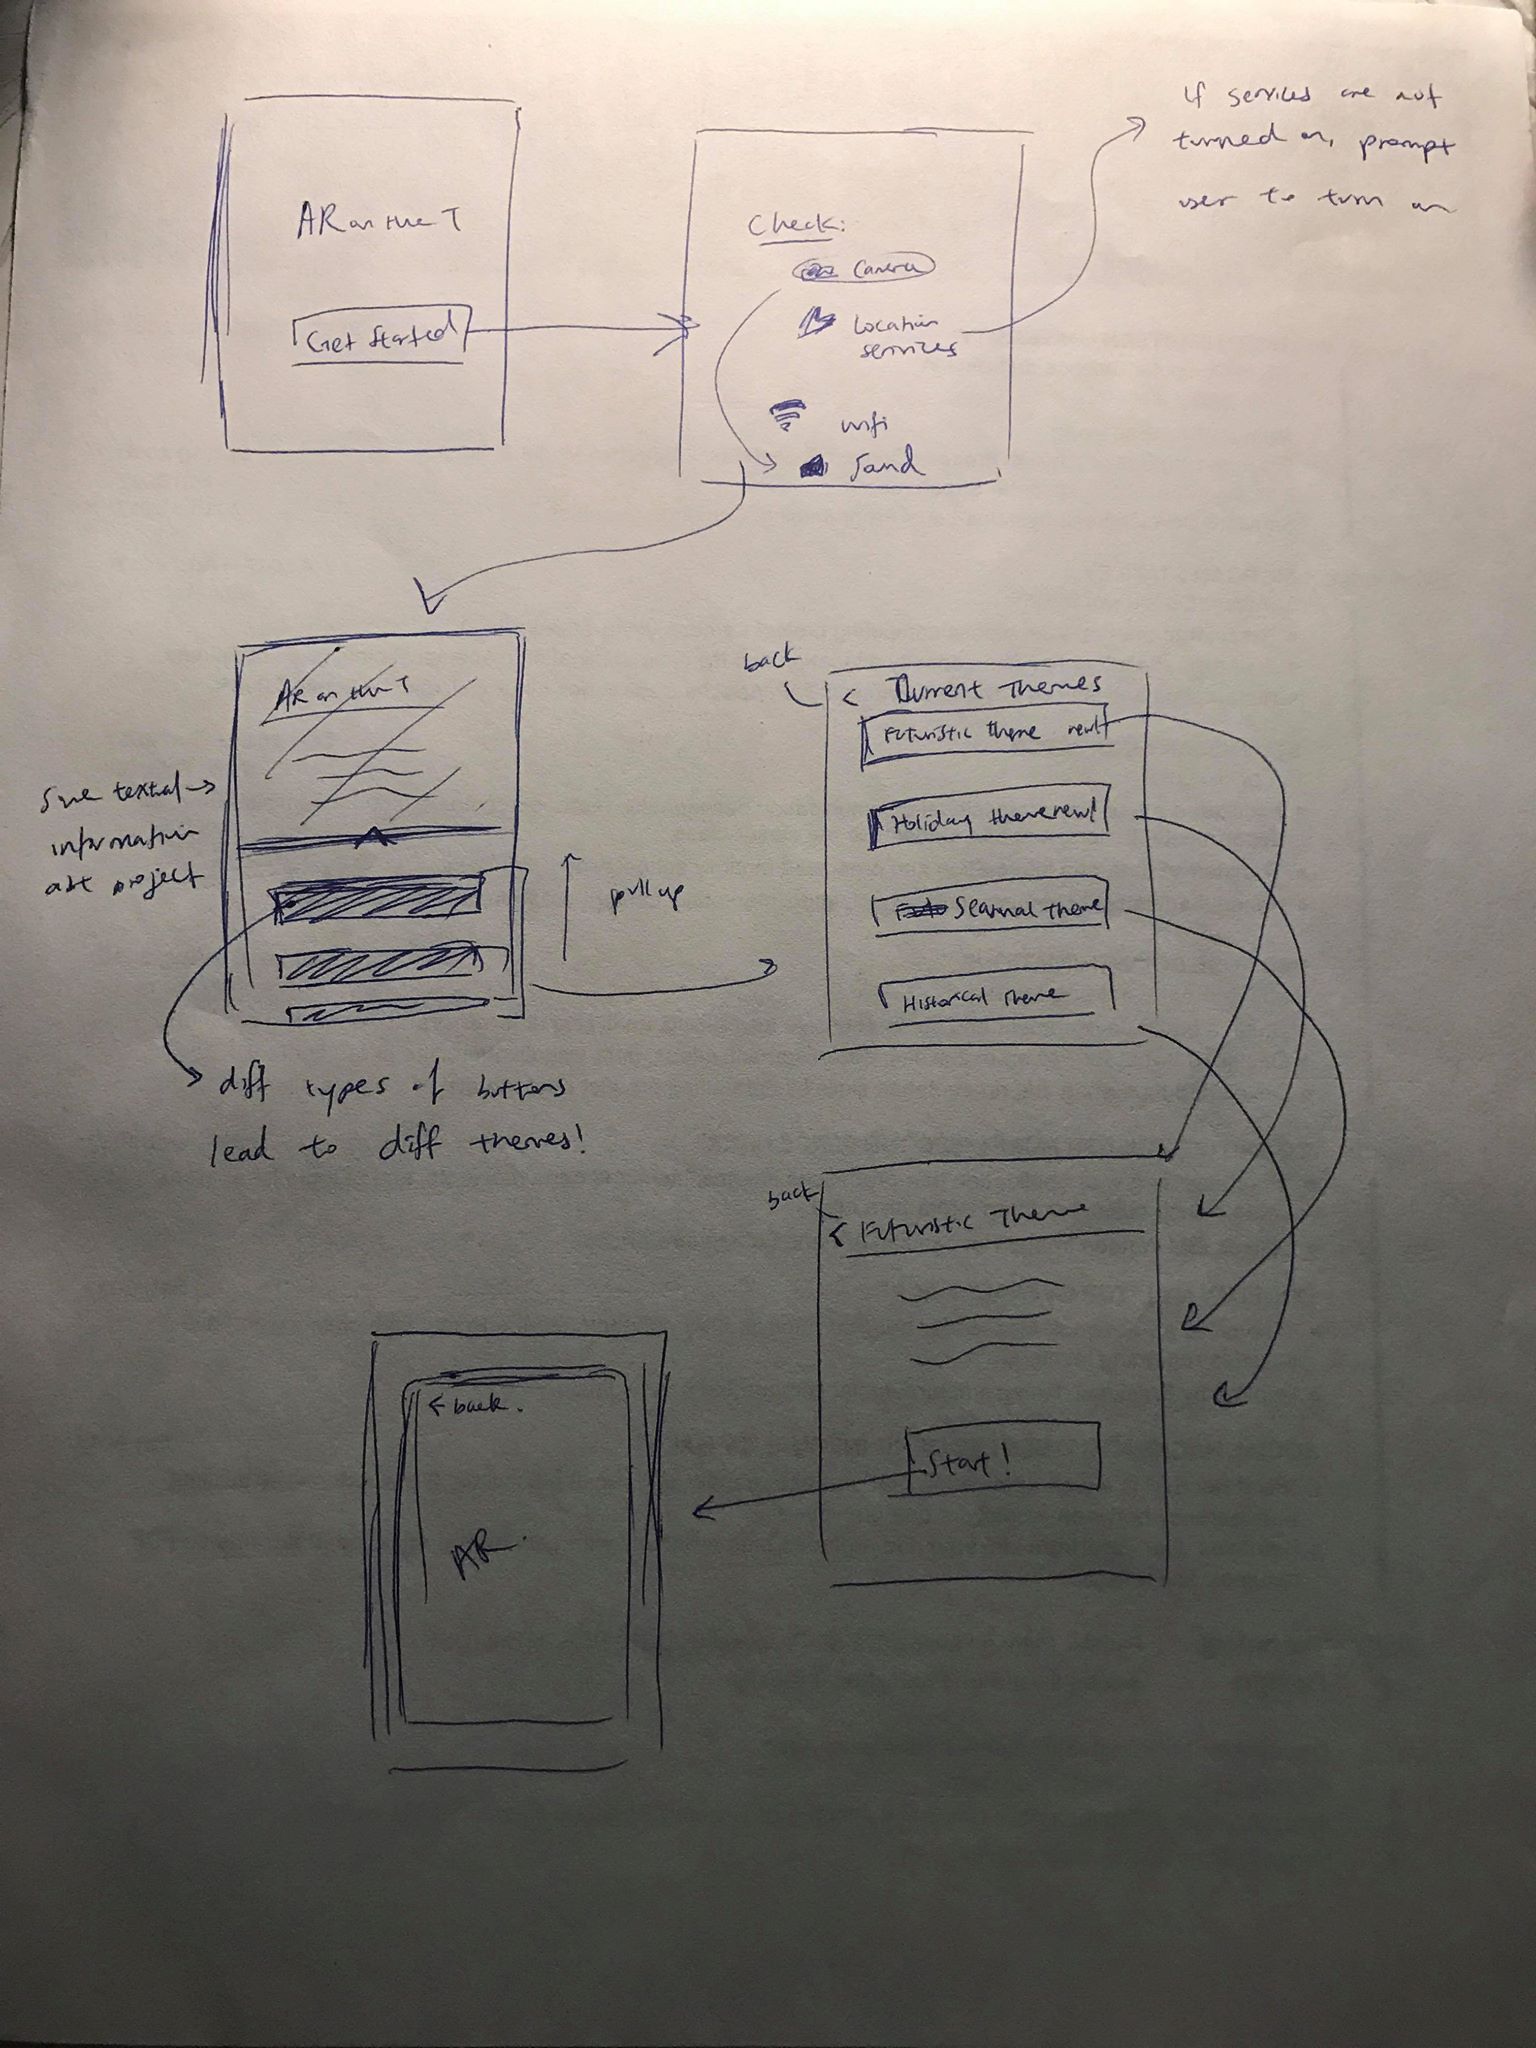 AR on the T
Get Started
Check:
Camera
Location
services
wifi
Sound
If services are not
turned on, prompt
user to turn on
AR on the T
Some textual →
information
abt project
pull up
diff types of buttons
lead to diff themes!
back
< Current Themes
Futuristic theme new!
Holiday theme new!
Seasonal theme
Historical Theme
back
< Futuristic Theme
Start!
← back.
AR.